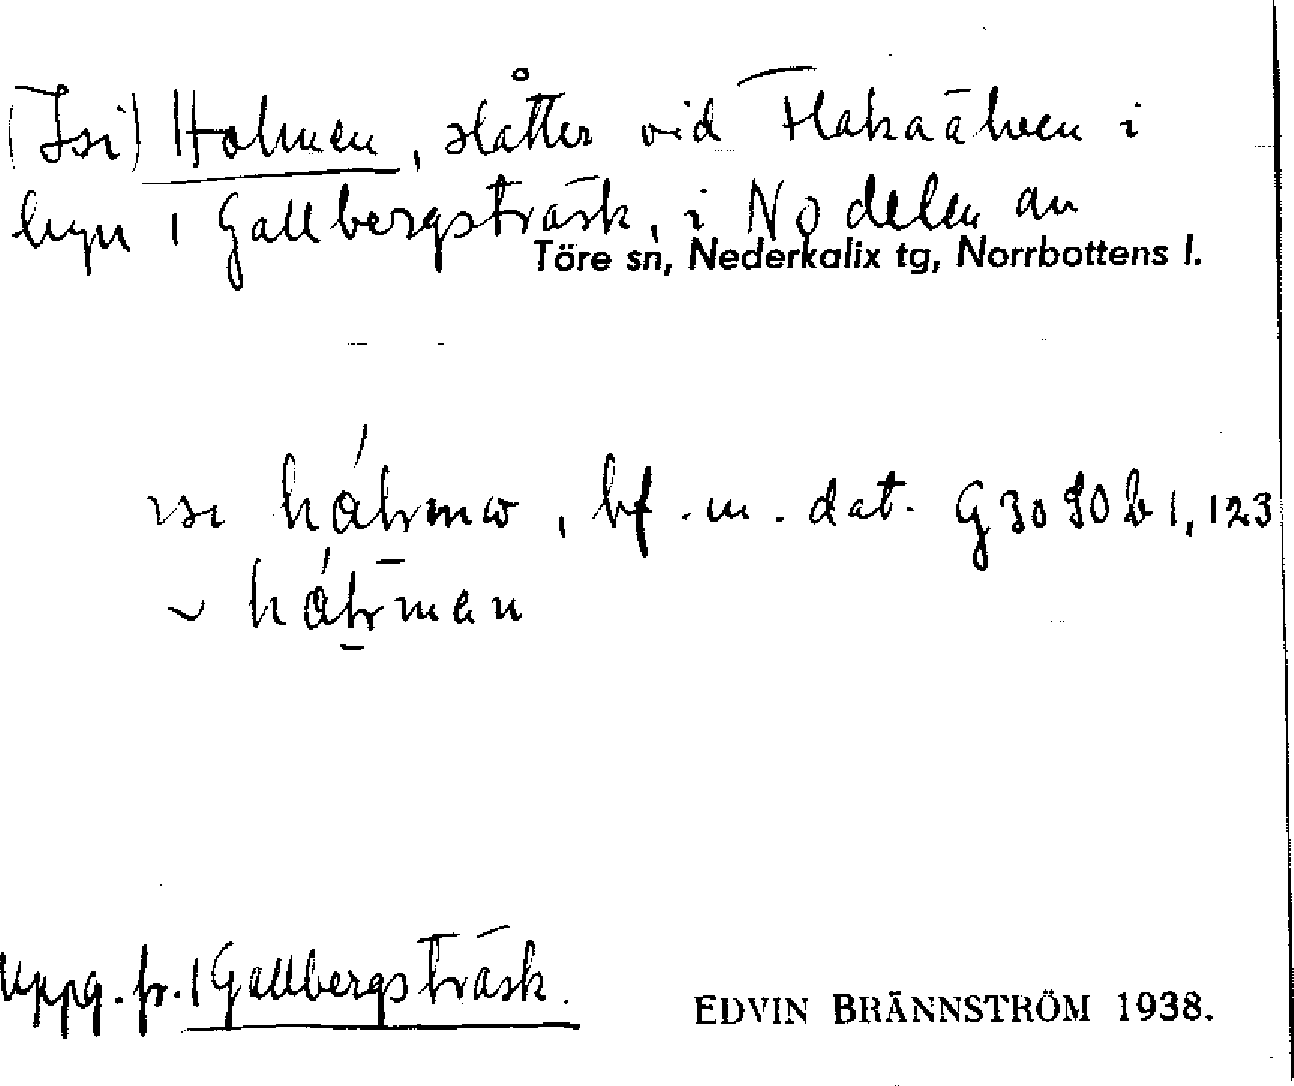 (Isi) Holmen, slåtter vid Flakaälven i
byn 1 Gallbergsträsk, i NO delen av
Töre sn, Nederkalix tg, Norrbottens l.
bf. m. dat.
Uppg. fr. 1 Gallbergsträsk.
EDVIN BRÄNNSTRÖM 1938.